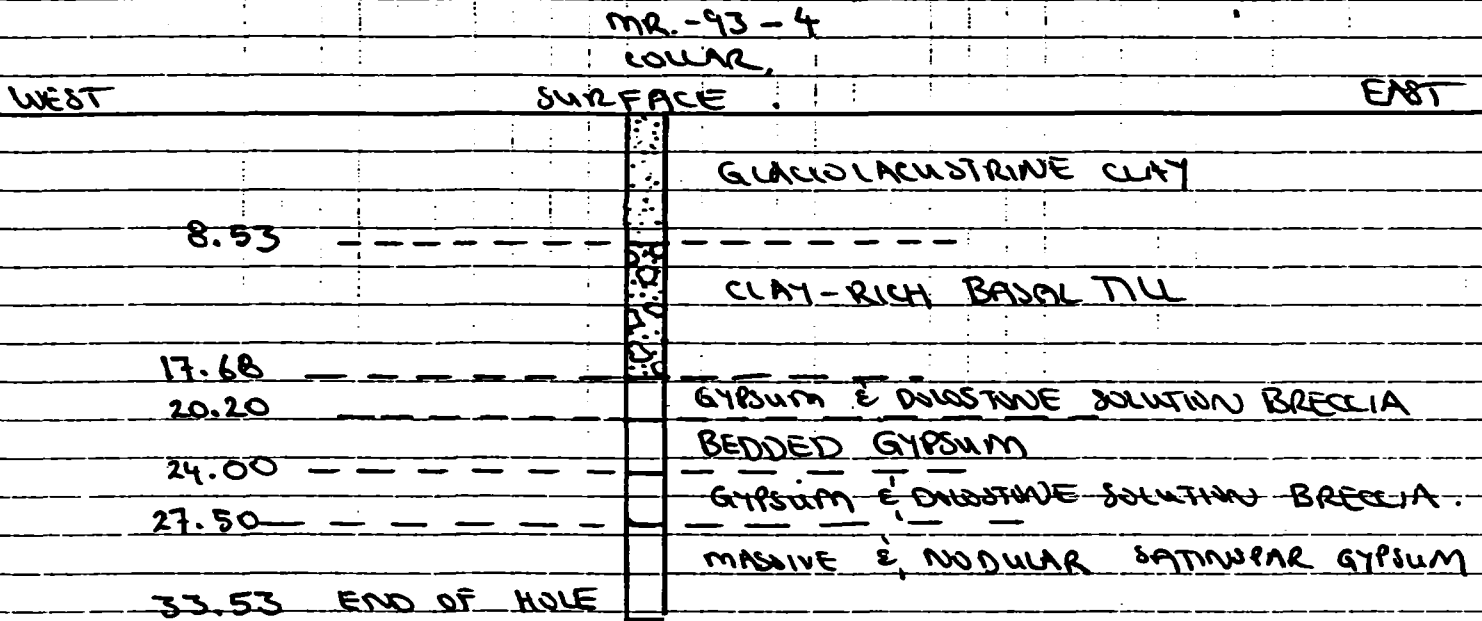 MR.-93-4
COLLAR,
WEST SURFACE. EAST
GLACIOLACUSTRINE CLAY
8.53
CLAY-RICH BASAL TILL
17.68
GYPSUM & DOLOSTONE SOLUTION BRECCIA
20.20
BEDDED GYPSUM
24.00
GYPSUM & DOLOSTONE SOLUTION BRECCIA.
27.50
MASSIVE & NODULAR SATINSPAR GYPSUM
33.53 END OF HOLE